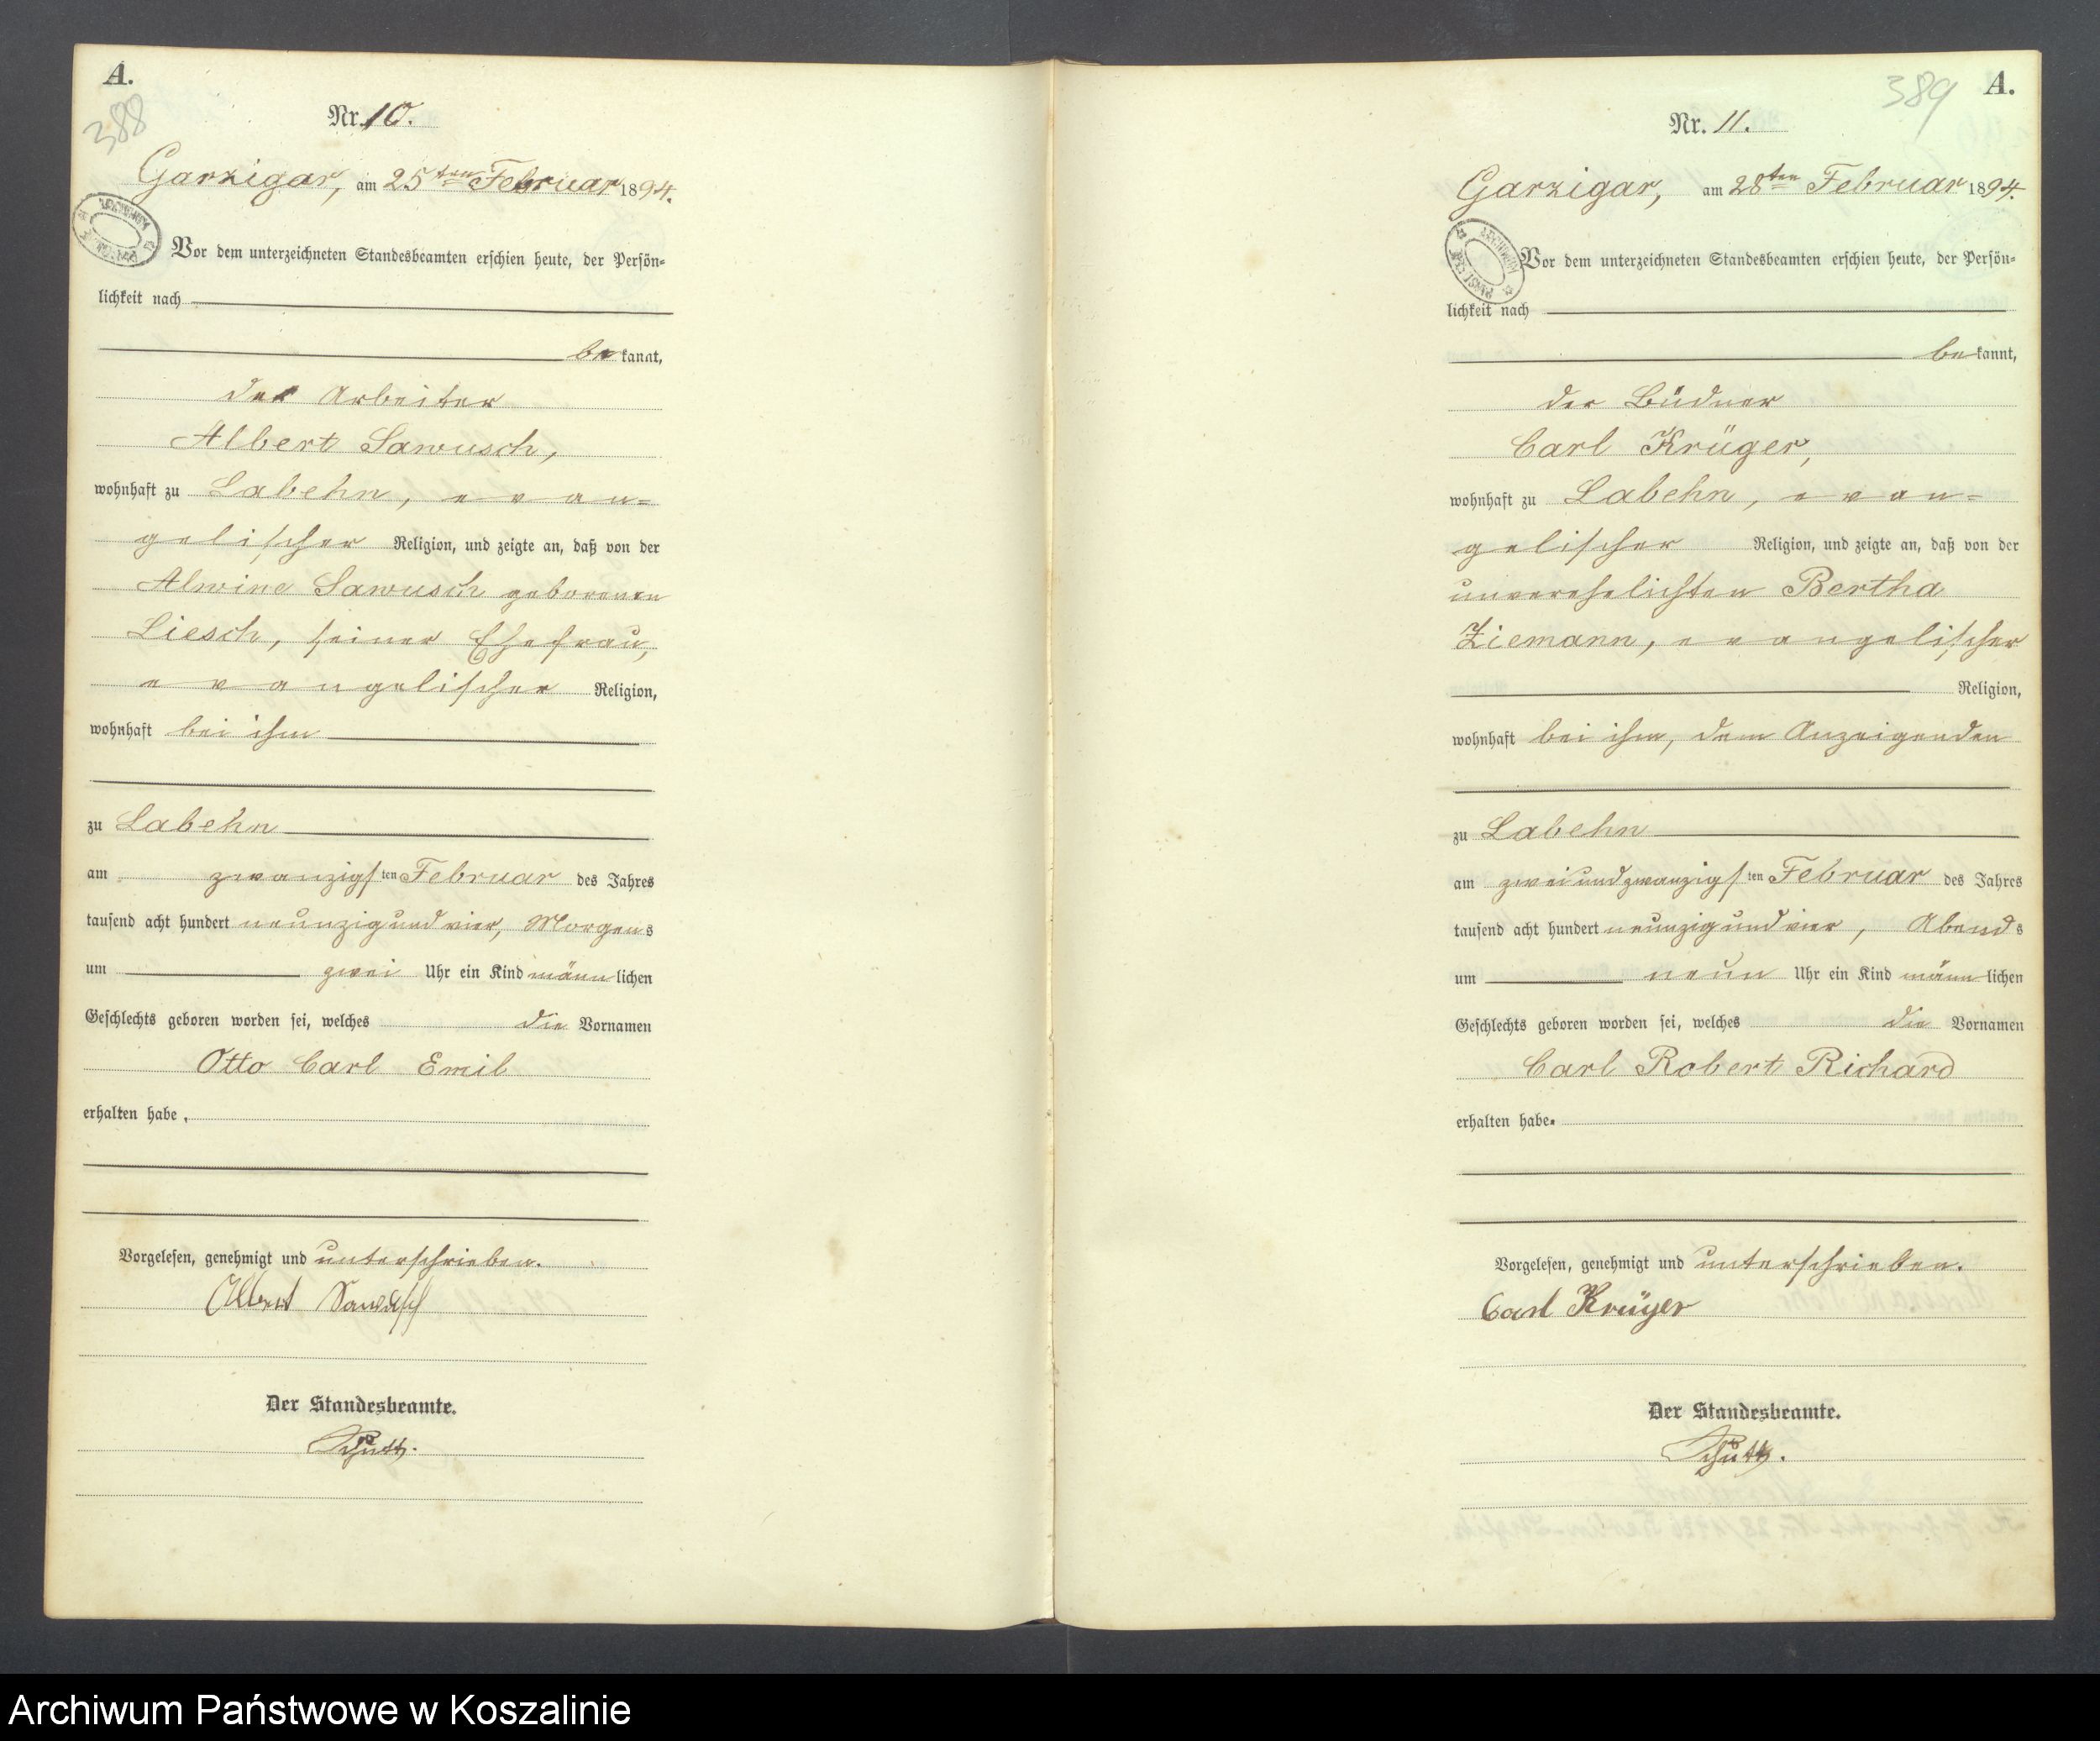 A.
388
Nr. 10.
Garzigar, am 25ten Februar 1894.
Vor dem unterzeichneten Standesbeamten erschien heute, der Persön=
lichkeit nach
be kannt,
der Arbeiter
Albert Sawusch,
wohnhaft zu Labehn, evan=
gelischer Religion, und zeigte an, daß von der
Alwine Sawusch geborenen
Liesch, seiner Ehefrau,
evangelischer Religion,
wohnhaft bei ihm
zu Labehn
am zwanzigsten Februar des Jahres
tausend acht hundert neunzigundvier, Morgens
um zwei Uhr ein Kind männlichen
Geschlechts geboren worden sei, welches die Vornamen
Otto Carl Emil
erhalten habe.
Vorgelesen, genehmigt und unterschrieben.
Albert Sawusch
Der Standesbeamte.
Schütt.
389
A.
Nr. 11.
Garzigar, am 28ten Februar 1894.
Vor dem unterzeichneten Standesbeamten erschien heute, der Persön=
lichkeit nach
be kannt,
der Büdner
Carl Krüger,
wohnhaft zu Labehn, evan=
gelischer Religion, und zeigte an, daß von der
unverehelichten Bertha
Ziemann, evangelischer
Religion,
wohnhaft bei ihm, dem Anzeigenden
zu Labehn
am zweiundzwanzigsten Februar des Jahres
tausend acht hundert neunzigundvier, Abends
um neun Uhr ein Kind männlichen
Geschlechts geboren worden sei, welches die Vornamen
Carl Robert Richard
erhalten habe.
Vorgelesen, genehmigt und unterschrieben.
Carl Krüger
Der Standesbeamte.
Schütt.
Archiwum Państwowe w Koszalinie